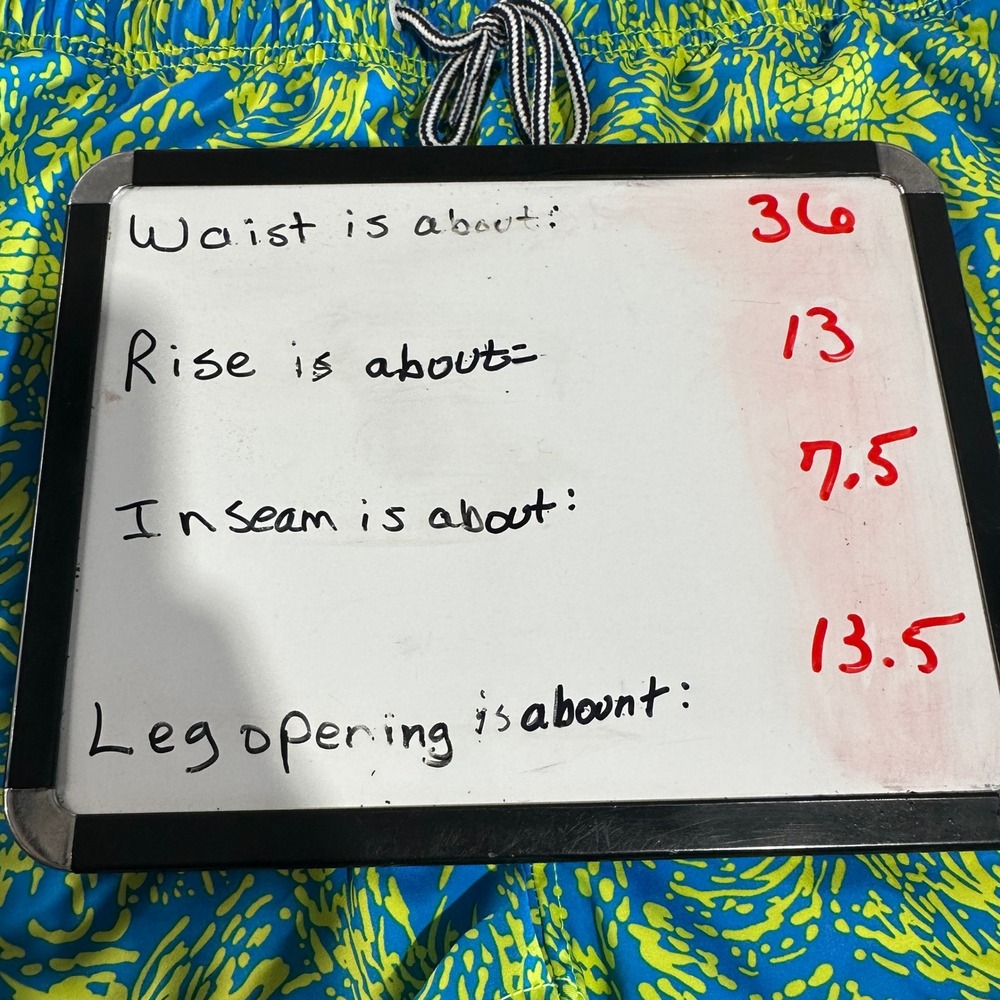 Waist is about: 36
Rise is about= 13
Inseam is about: 7.5
Leg opening is abount: 13.5